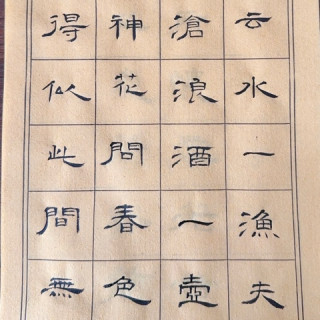 云水一漁夫
滄浪酒一壺
神花問春色
得似此間無